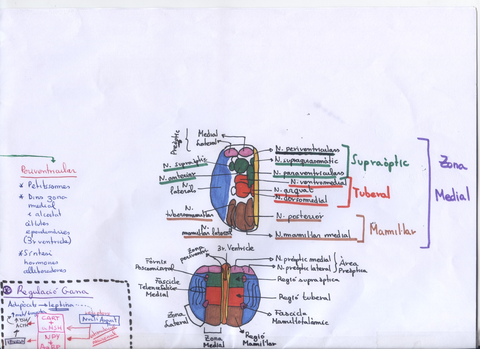 Preòptic
Medial
Lateral
N. supraòptic
N. anterior
N. Lateral
N. tuberomamilar
N. mamillar lateral
N. periventriculars
N. supraquiasmàtic
N. paraventriculars
N. ventromedial
N. arquat
N. dorsomedial
N. posterior
N. mamillar medial
Supraòptic
Tuberal
Mamillar
Zona
Medial
Periventricular
* Petites
* Dins zona
medial
al costat
3r ventricle
* Síntesi
hormones
alliberadores
3r. Ventricle
Fórnix
Fascicle
Telencefàlic
Medial
Zona
Lateral
Zona
Medial
Regió
Mamillar
N. preòptic medial
N. preòptic lateral
Àrea
Preòptica
Regió supraòptica
Regió tuberal
Fascicle
Mamillotalàmic
Regulació Gana
Adipòcits → leptina
CART
α-MSH
NPY
AgRP
Nucli Arquat